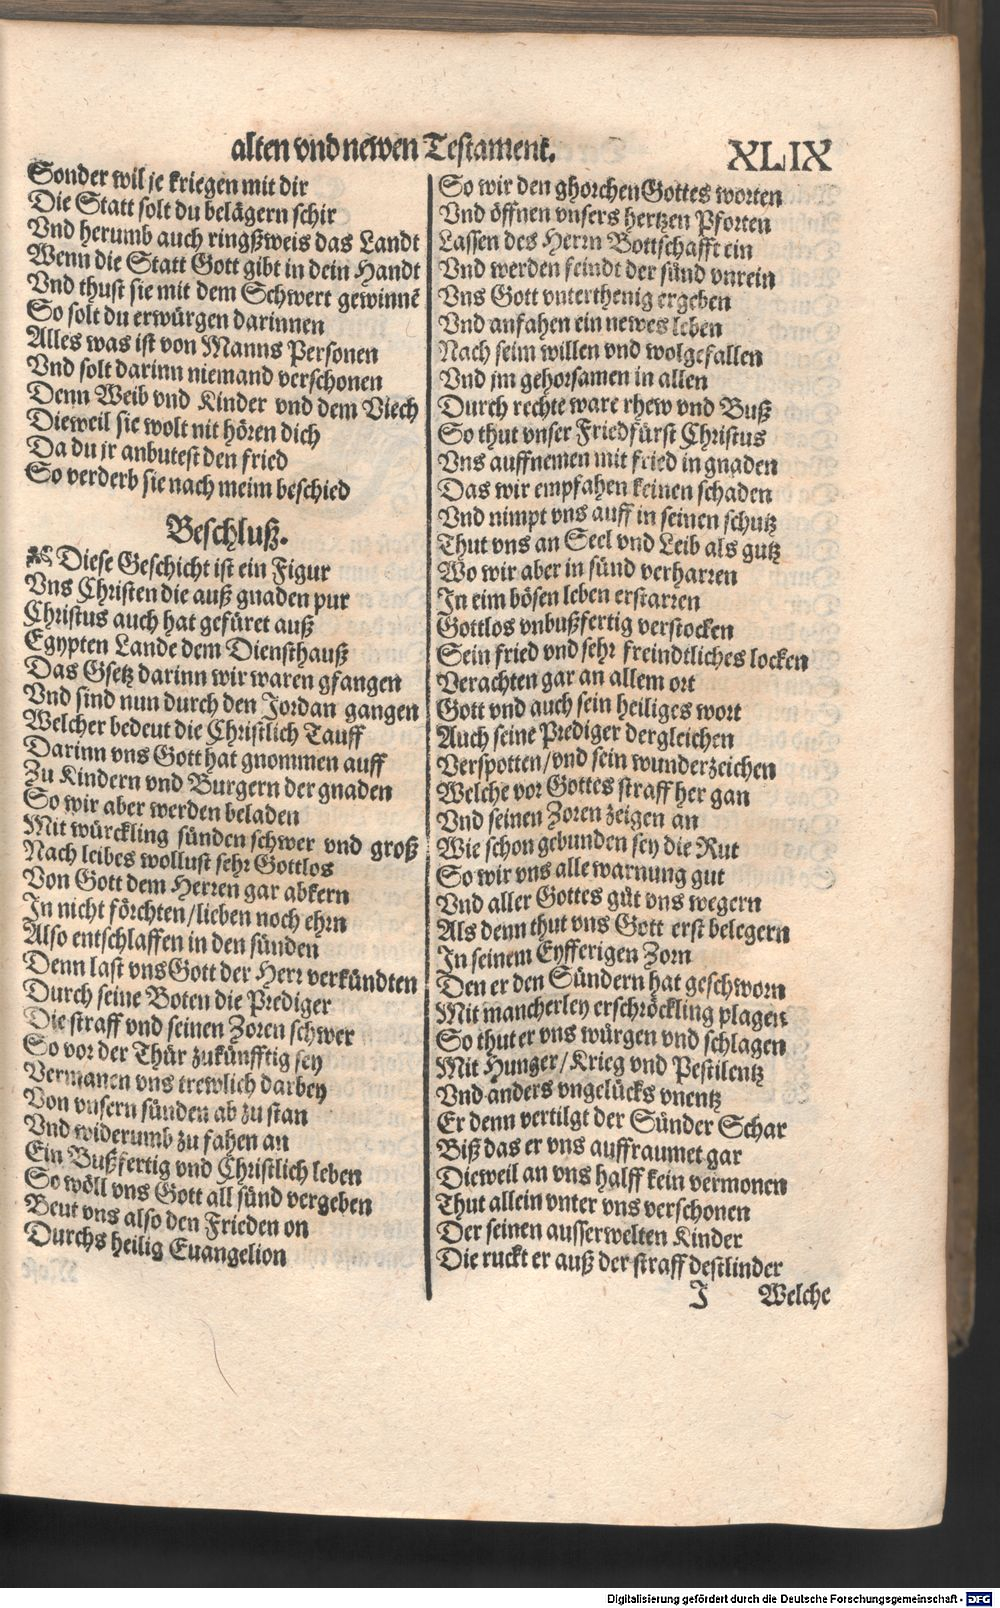 alten vnd newen Testament. XLIX
Sonder wil je kriegen mit dir
Die Statt solt du belägern schir
Vnd herumb auch ringßweis das Landt
Wenn die Statt Gott gibt in dein Handt
Vnd thust sie mit dem Schwert gewinnē
So solt du erwürgen darinnen
Alles was ist von Manns Personen
Vnd solt darinn niemand verschonen
Denn Weib vnd Kinder vnd dem Viech
Dieweil sie wolt nit hören dich
Da du jr anbutest den fried
So verderb sie nach meim beschied
Beschluß.
Diese Geschicht ist ein Figur
Vns Christen die auß gnaden pur
Christus auch hat gefüret auß
Egypten Lande dem Diensthauß
Das Gsetz darinn wir waren gfangen
Vnd sind nun durch den Jordan gangen
Welcher bedeut die Christlich Tauff
Darinn vns Gott hat gnommen auff
Zu Kindern vnd Burgern der gnaden
So wir aber werden beladen
Mit würckling sünden schwer vnd groß
Nach leibes wollust sehr Gottlos
Von Gott dem Herren gar abkern
In nicht förchten/lieben noch ehrn
Also entschlaffen in den sünden
Denn last vns Gott der Herr verkündten
Durch seine Boten die Prediger
Die straff vnd seinen Zoren schwer
So vor der Thür zukünfftig sey
Vermanen vns trewlich darbey
Von vnsern sünden ab zu stan
Vnd widerumb zu fahen an
Ein Bußfertig vnd Christlich leben
So wöll vns Gott all sünd vergeben
Beut vns also den Frieden on
Durchs heilig Euangelion
So wir den ghorchen Gottes worten
Vnd öffnen vnsers hertzen Pforten
Lassen des Herrn Bottschafft ein
Vnd werden feindt der sünd vnrein
Vns Gott vnterthenig ergeben
Vnd anfahen ein newes leben
Nach seim willen vnd wolgefallen
Vnd jm gehorsamen in allen
Durch rechte ware rhew vnd Buß
So thut vnser Friedfürst Christus
Vns auffnemen mit fried in gnaden
Das wir empfahen keinen schaden
Vnd nimpt vns auff in seinen schutz
Thut vns an Seel vnd Leib als gutz
Wo wir aber in sünd verharren
In eim bösen leben erstarren
Gottlos vnbußfertig verstocken
Sein fried vnd sehr freindtliches locken
Verachten gar an allem ort
Gott vnd auch sein heiliges wort
Auch seine Prediger dergleichen
Verspotten/vnd sein wunderzeichen
Welche vor Gottes straff her gan
Vnd seinen Zoren zeigen an
Wie schon gebunden sey die Rut
So wir vns alle warnung gut
Vnd aller Gottes güt vns wegern
Als denn thut vns Gott erst belegern
In seinem Eyfferigen Zorn
Den er den Sündern hat geschworn
Mit mancherley erschröckling plagen
So thut er vns würgen vnd schlagen
Mit Hunger/Krieg vnd Pestilentz
Vnd anders vngelücks vnentz
Er denn vertilgt der Sünder Schar
Biß das er vns auffraumet gar
Dieweil an vns halff kein vermonen
Thut allein vnter vns verschonen
Der seinen ausserwelten Kinder
Die ruckt er auß der straff destlinder
J Welche
Digitalisierung gefördert durch die Deutsche Forschungsgemeinschaft - DFG